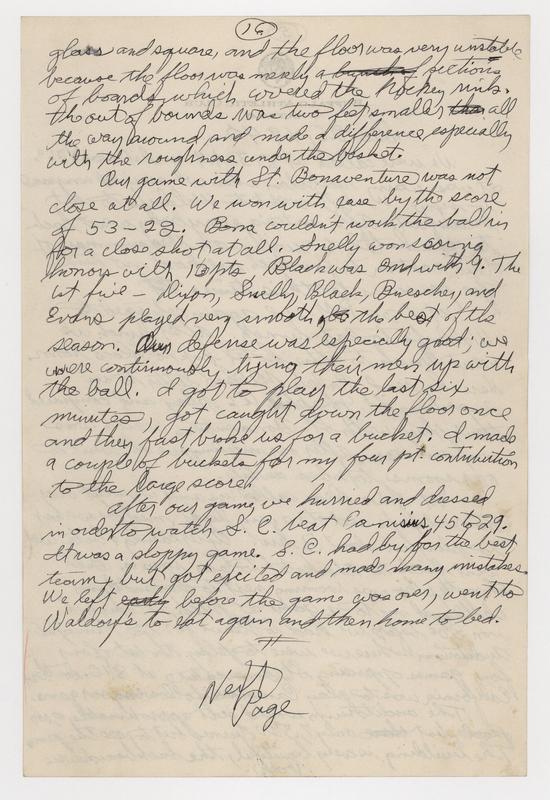 16
glass and square, and the floor was very unstable
because the floor was merely a bunch of sections
of boards which covered the hockey rink.
The out of bounds was two feet smaller than all
the way around and made a difference especially
with the roughness under the basket.
Our game with St. Bonaventure was not
close at all. We won with ease by the score
of 53-22. Bona couldn't work the ball in
for a close shot at all. Snelly won scoring
honors with 10 pts, Black was 2nd with 9. The
1st five - Dixon, Snelly, Black, Buescher, and
Evans played very smooth, the best of the
season. Our defense was especially good; we
were continuously tying their men up with
the ball. I got to play the last six
minutes, got caught down the floor once
and they fast broke us for a bucket. I made
a couple of buckets for my four pt. contribution
to the large score.
After our game we hurried and dressed
in order to watch S. C. beat Canisius 45 to 29.
It was a sloppy game. S. C. had by far the best
team, but got excited and made many mistakes.
We left early before the game was over, went to
Waldorfs to eat again and then home to bed.
Next
Page